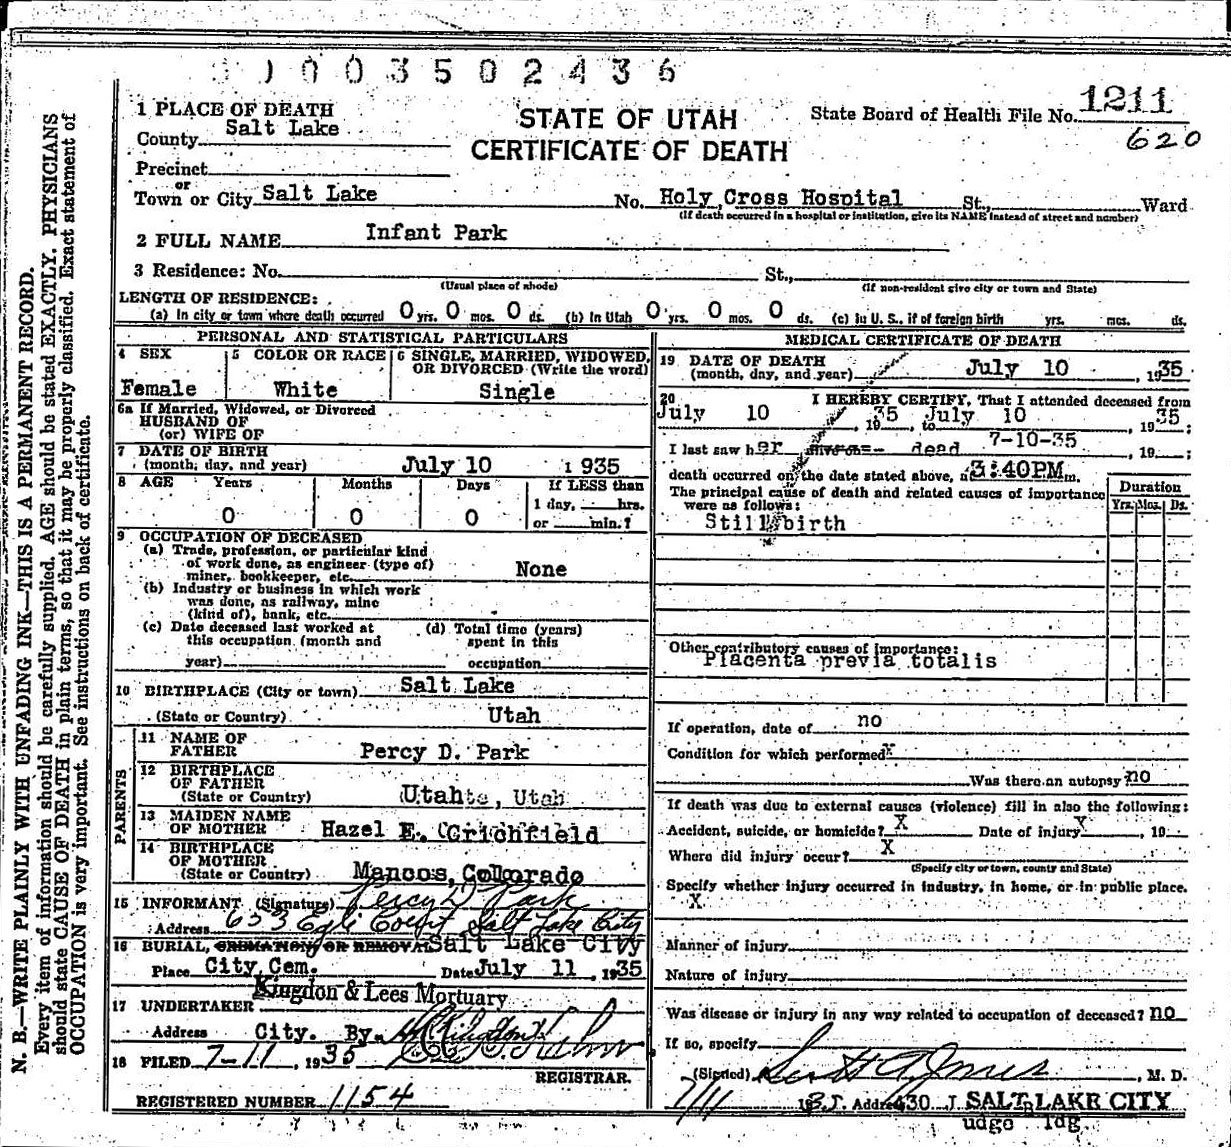 0 0 3 5 0 2 4 3 6
1 PLACE OF DEATH
County Salt Lake
STATE OF UTAH
CERTIFICATE OF DEATH
State Board of Health File No. 1211
620
Precinct
or
Town or City Salt Lake No. Holy Cross Hospital St., Ward
(If death occurred in a hospital or institution, give its NAME instead of street and number)
2 FULL NAME Infant Park
3 Residence: No. St.,
(Usual place of abode) (If non-resident give city or town and State)
LENGTH OF RESIDENCE:
(a) In city or town where death occurred 0 yrs. 0 mos. 0 ds. (b) In Utah 0 yrs. 0 mos. 0 ds. (c) In U. S., if of foreign birth yrs. mos. ds.
PERSONAL AND STATISTICAL PARTICULARS
4 SEX 5 COLOR OR RACE 6 SINGLE, MARRIED, WIDOWED, OR DIVORCED (Write the word)
Female White Single
6a If Married, Widowed, or Divorced
HUSBAND OF
(or) WIFE OF
7 DATE OF BIRTH
(month, day, and year) July 10 1935
8 AGE Years Months Days If LESS than
1 day, hrs.
0 0 0 or min.?
9 OCCUPATION OF DECEASED
(a) Trade, profession, or particular kind
of work done, as engineer (type of)
miner, bookkeeper, etc. None
(b) Industry or business in which work
was done, as railway, mine
(kind of), bank, etc.
(c) Date deceased last worked at (d) Total time (years)
this occupation (month and spent in this
year) occupation
10 BIRTHPLACE (City or town) Salt Lake
(State or Country) Utah
PARENTS
11 NAME OF
FATHER Percy D. Park
12 BIRTHPLACE
OF FATHER
(State or Country) Utahte, Utah
13 MAIDEN NAME
OF MOTHER Hazel E. Crichfield
14 BIRTHPLACE
OF MOTHER
(State or Country) Mancos, Colorado
15 INFORMANT (Signature) Percy D Park
Address 633 Egli Court Salt Lake City
16 BURIAL, CREMATION, OR REMOVAL Salt Lake City
Place City Cem. Date July 11, 1935
17 UNDERTAKER Kingdon & Lees Mortuary
Address City. By
18 FILED 7-11, 1935
REGISTRAR.
REGISTERED NUMBER 1154
MEDICAL CERTIFICATE OF DEATH
19 DATE OF DEATH
(month, day, and year) July 10, 1935
20 I HEREBY CERTIFY, That I attended deceased from
July 10, 1935, to July 10, 1935;
I last saw her dead 7-10-35, 19 ;
death occurred on the date stated above, a 3:40PM m.
The principal cause of death and related causes of importance
were as follows:
Duration
Yrs. Mos. Ds.
Still birth
Other contributory causes of importance:
Placenta previa totalis
If operation, date of no
Condition for which performed x
Was there an autopsy no
If death was due to external causes (violence) fill in also the following:
Accident, suicide, or homicide? X Date of injury X, 19
Where did injury occur? X
(Specify city or town, county and State)
Specify whether injury occurred in industry, in home, or in public place.
X
Manner of injury
Nature of injury
Was disease or injury in any way related to occupation of deceased? no
If so, specify
(Signed) , M. D.
7/11 1935. Address 430 J SALT LAKE CITY
udge ldg.
N. B.—WRITE PLAINLY WITH UNFADING INK—THIS IS A PERMANENT RECORD.
Every item of information should be carefully supplied. AGE should be stated EXACTLY. PHYSICIANS
should state CAUSE OF DEATH in plain terms, so that it may be properly classified. Exact statement of
OCCUPATION is very important. See instructions on back of certificate.